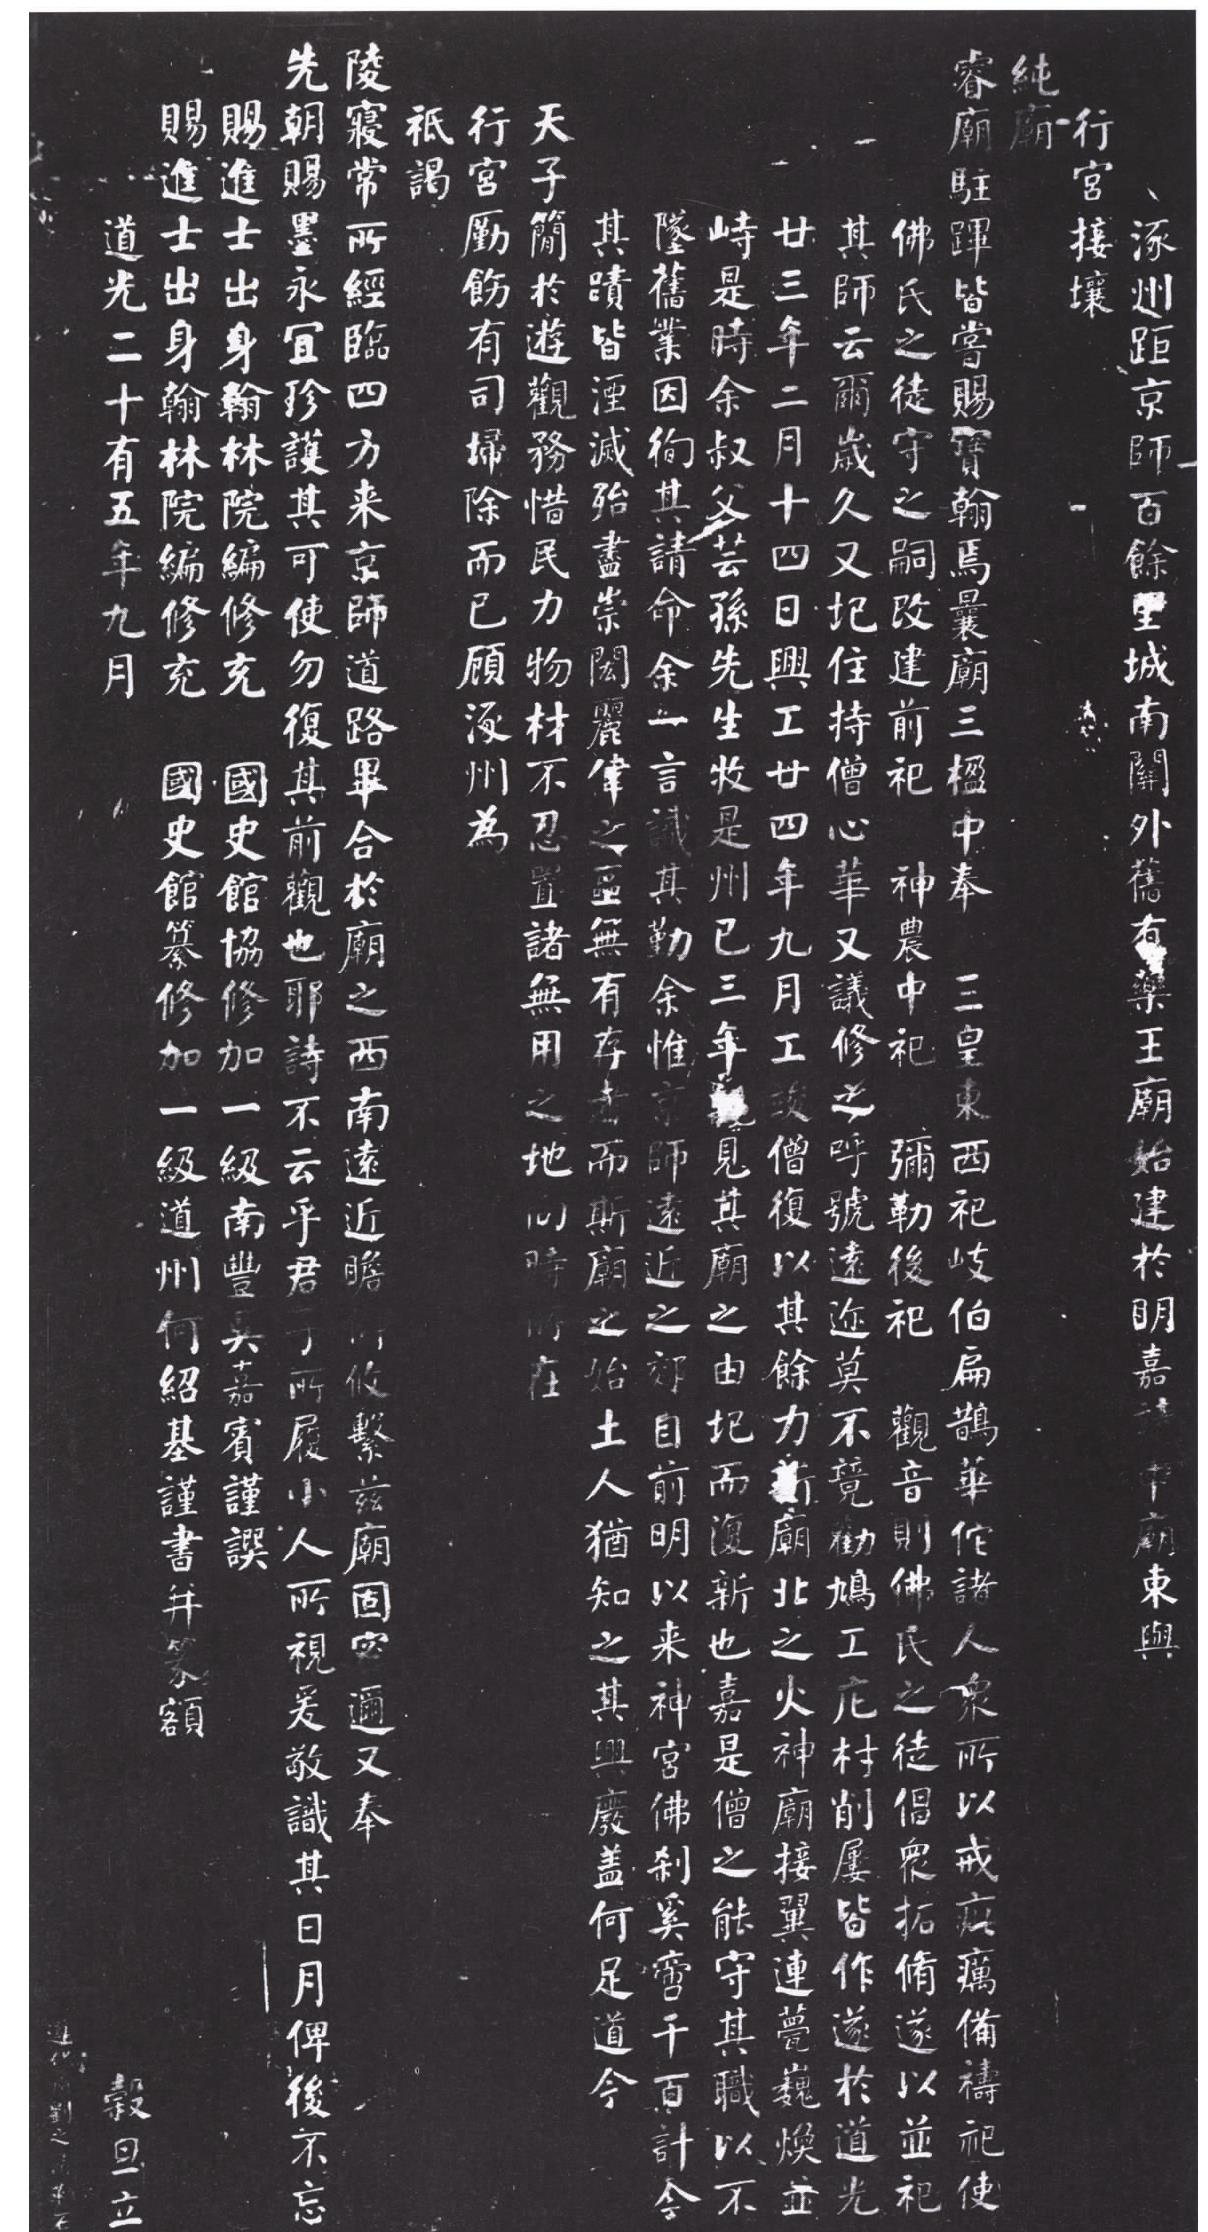 涿州距京師百餘里城南關外舊有藥王廟始建於明嘉中廟東與
行宮接壤
純廟
睿廟駐蹕皆嘗賜寶翰焉曩廟三楹中奉三皇東西祀岐伯扁鵲華佗諸人衆所以戒疵癘備禱祀使
佛氏之徒守之嗣改建前祀神農中祀彌勒後祀觀音則佛氏之徒倡衆拓脩遂以並祀
其師云爾歲久又圮住持僧心華又議修之呼號遠迩莫不競勸鳩工庀材削屢皆作遂於道光
廿三年二月十四日興工廿四年九月工竣僧復以其餘力新廟北之火神廟接翼連甍巍煥並
峙是時余叔父芸孫先生牧是州已三年見其廟之由圮而復新也嘉是僧之能守其職以不
墜舊業因徇其請命余一言識其勤余惟京師遠近之郊自前明以来神宮佛刹奚啻千百計今
其蹟皆湮滅殆盡崇閎麗偉之區無有存者而斯廟之始土人猶知之其興廢盖何足道今
天子簡於遊觀務惜民力物材不忍置諸無用之地向時所在
行宮勵飭有司埽除而已顧涿州為
祗謁
陵寢常所經臨四方来京師道路畢合於廟之西南遠近瞻所攸繫茲廟固密邇又奉
先朝賜墨永宜珍護其可使勿復其前觀也耶詩不云乎君子所履小人所視爰敬識其日月俾後不忘
賜進士出身翰林院編修充國史館協修加一級南豐吳嘉賓謹譔
賜進士出身翰林院編修充國史館纂修加一級道州何紹基謹書并篆額
道光二十有五年九月穀旦立
劉之